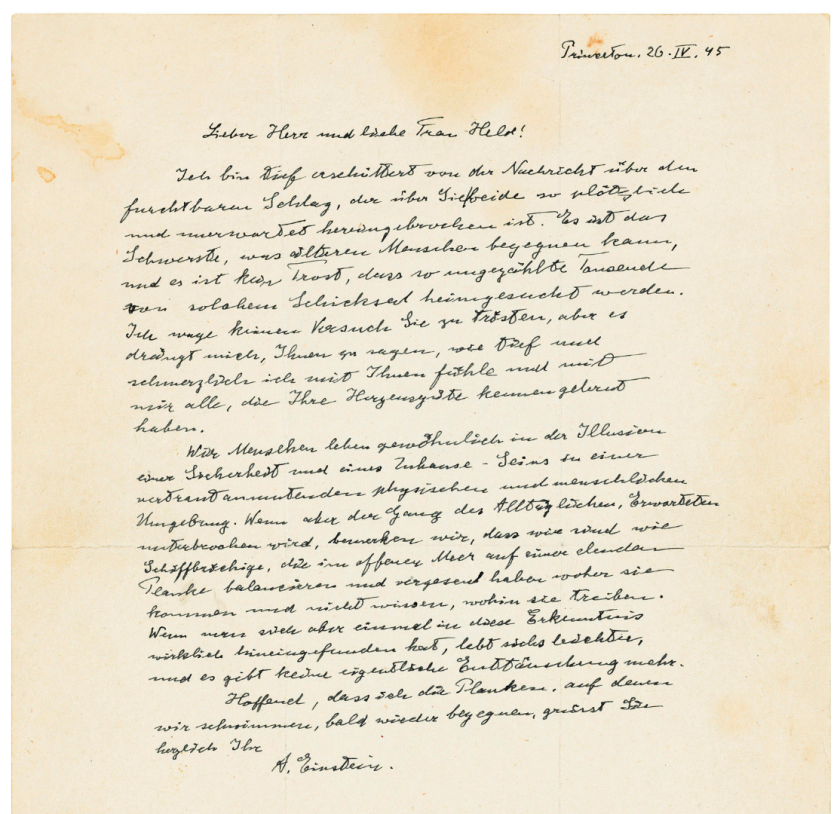 Princeton. 26. IV. 45
Lieber Herr und liebe Frau Held!
Ich bin tief erschüttert von der Nachricht über den
furchtbaren Schlag, der über Sie beide so plötzlich
und unerwartet hereingebrochen ist. Es ist das
Schwerste, was älteren Menschen begegnen kann,
und es ist kein Trost, dass so ungezählte Tausende
von solchem Schicksal heimgesucht werden.
Ich wage keinen Versuch Sie zu trösten, aber es
drängt mich, Ihnen zu sagen, wie tief und
schmerzlich ich mit Ihnen fühle und mit
mir alle, die Ihre Herzensgüte kennen gelernt
haben.
Wir Menschen leben gewöhnlich in der Illusion
einer Sicherheit und eines Zuhause-Seins in einer
vertraut anmutenden physischen und menschlichen
Umgebung. Wenn aber der Gang des Alltäglichen, Erwarteten
unterbrochen wird, bemerken wir, dass wir sind wie
Schiffbrüchige, die im offenen Meer auf einer elenden
Planke balancieren und vergessend haben woher sie
kommen und nicht wissen, wohin sie treiben.
Wenn man sich aber einmal in diese Erkenntnis
wirklich hineingefunden hat, lebt sichs leichter,
und es gibt keine eigentliche Enttäuschung mehr.
Hoffend, dass sich die Planken, auf denen
wir schwimmen, bald wieder begegnen, grüsst Sie
herzlich Ihr
A. Einstein.